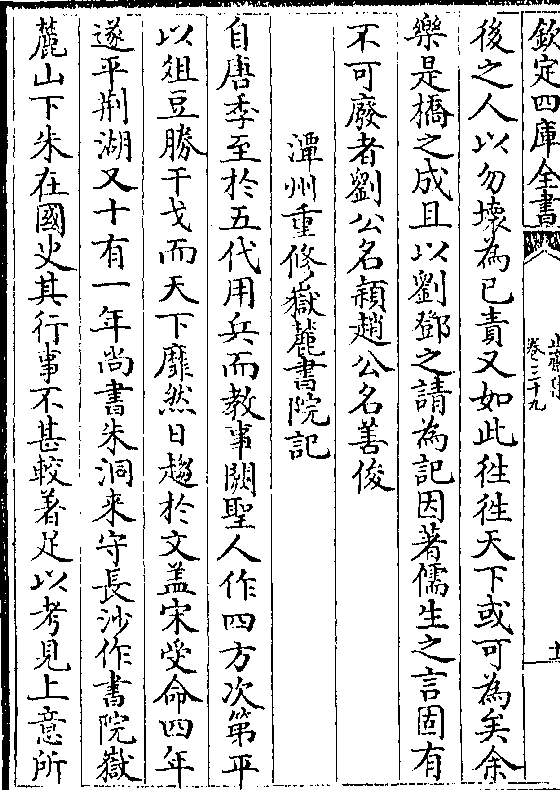 欽定四庫全書
卷三十九
後之人以勿壞為已責又如此徃徃天下或可為矣余
樂是橋之成且以劉鄧之請為記因著儒生之言固有
不可廢者劉公名穎趙公名善俊
潭州重修嶽麓書院記
自唐季至於五代用兵而教事闕聖人作四方次第平
以俎豆勝干戈而天下靡然日趨於文盖宋受命四年
遂平荆湖又十有一年尚書朱洞来守長沙作書院嶽
麓山下朱在國史其行事不甚較著足以考見上意所